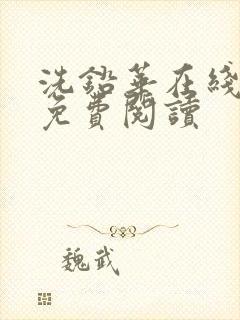 洗鉛華在綫
免費閱讀
魏武